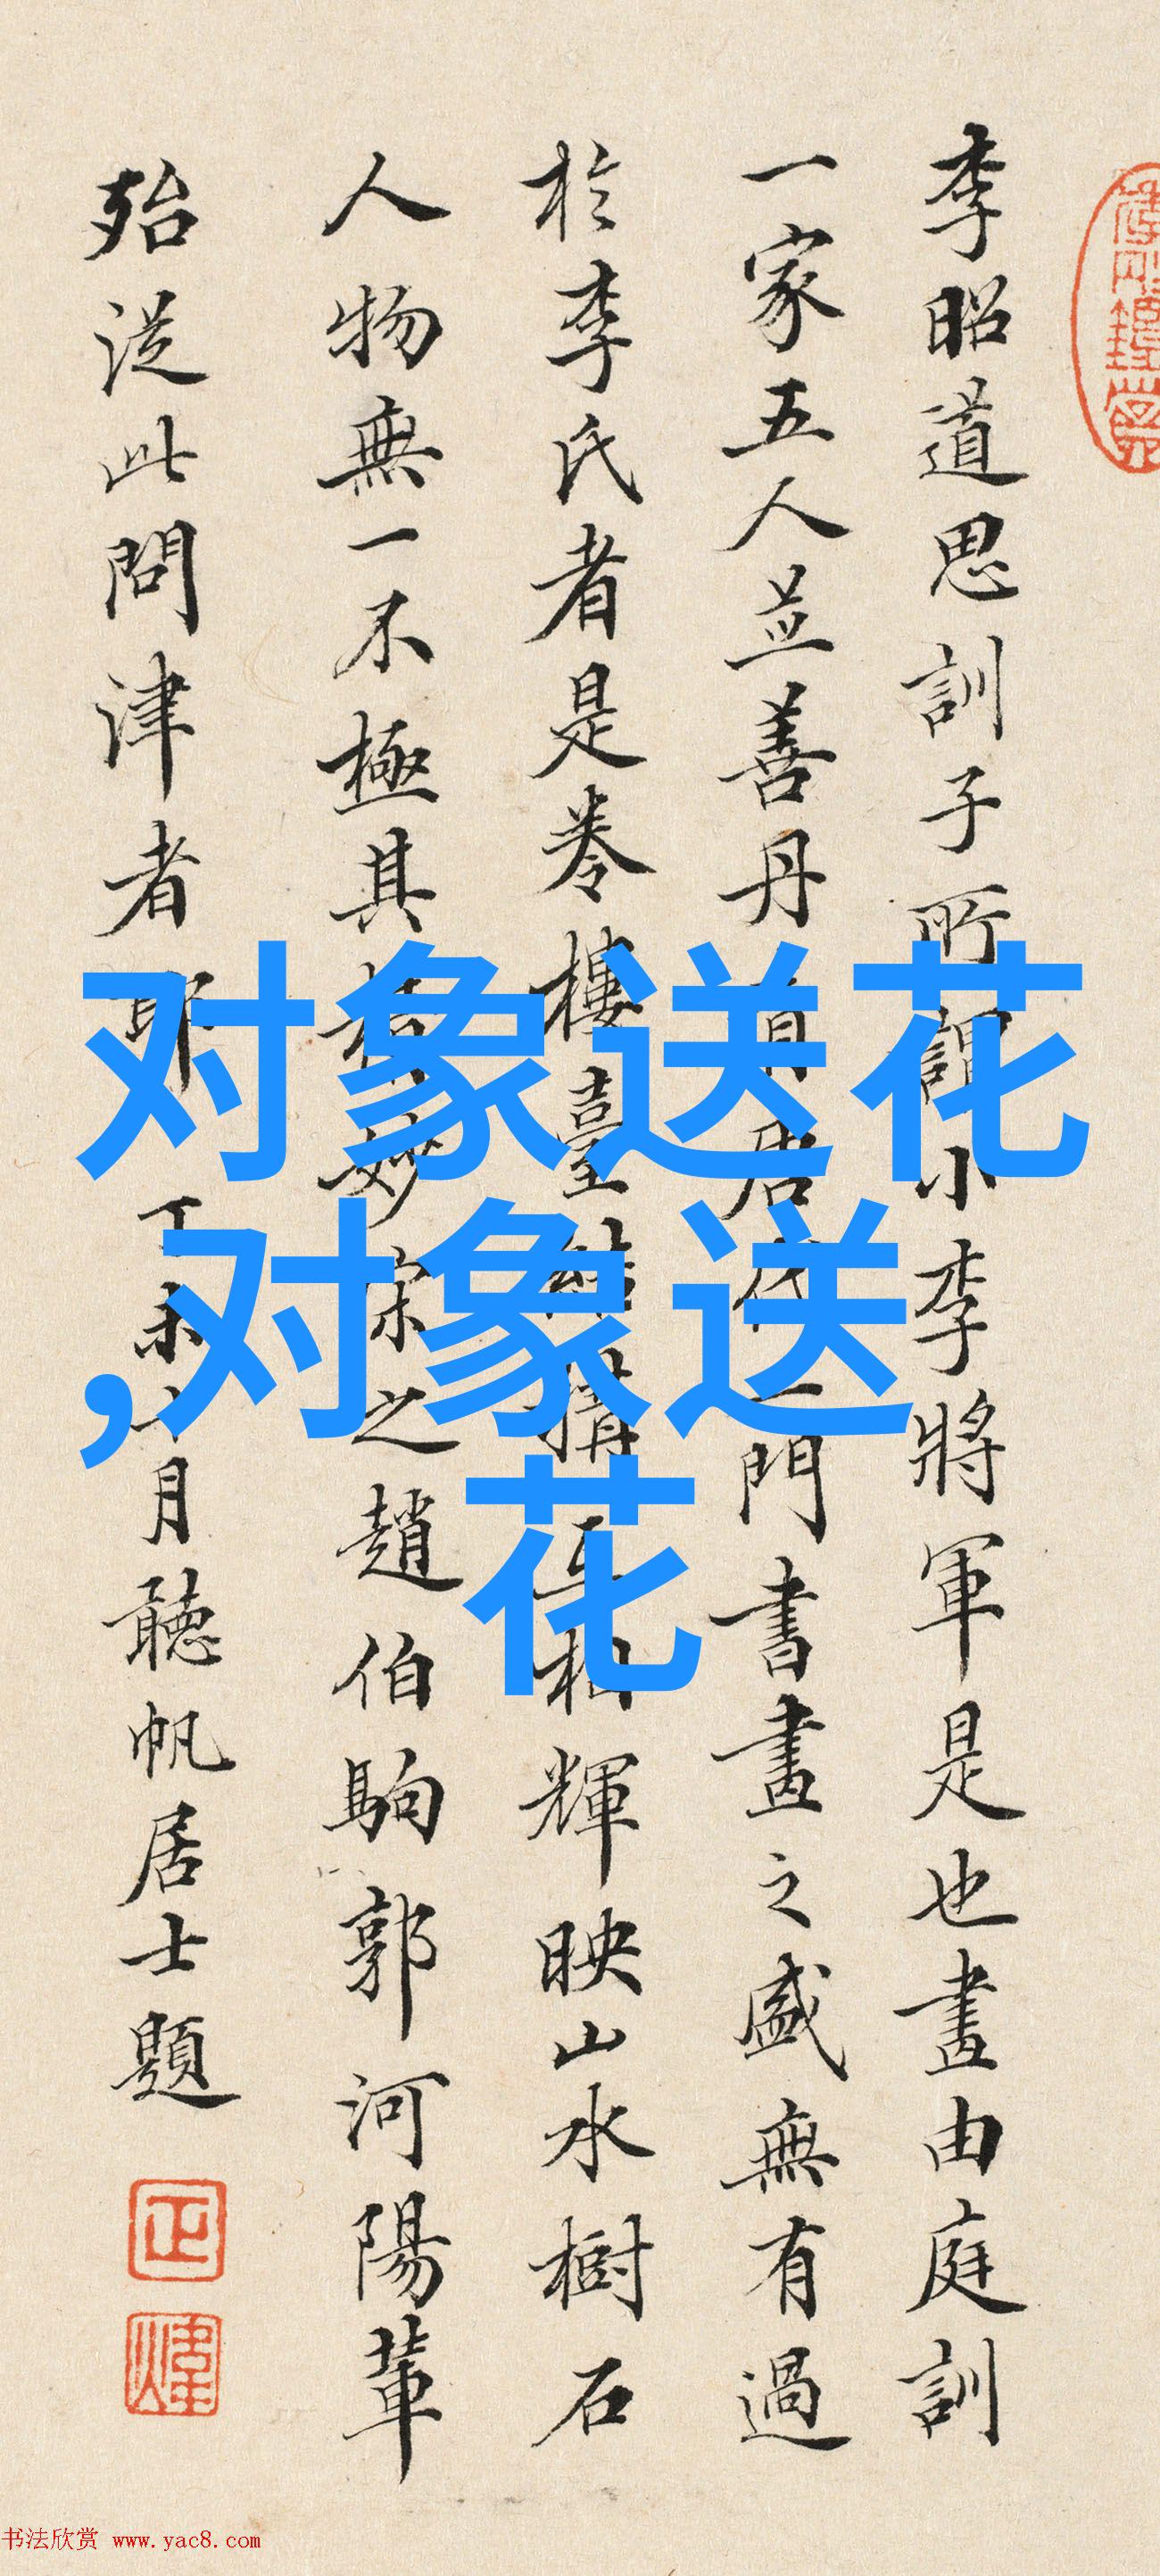 李昭道思訓子所謂小李將軍是也畫由庭訓
一家五人並善丹青唐代一門書畫之盛無有過
於李氏者是卷樓臺結構互相輝映山水樹石
人物無一不極其精妙宋之趙伯駒郭河陽輩
殆從此問津者耶 丁未十月聽帆居士題
对象送花
,对象送
花
书法欣赏 www.yac8.com